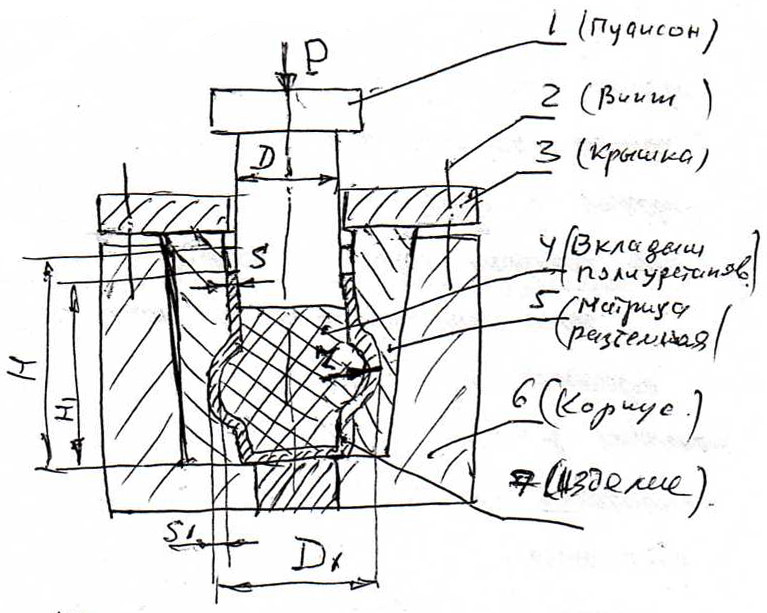 1 (Пуансон)
P
2 (Винт)
3 (Крышка)
D
4 (Вкладыш
полиуретанов.)
S
5 (матрица
разъемная)
H
H1
6 (Корпус.)
7 (изделие).
S1
D1